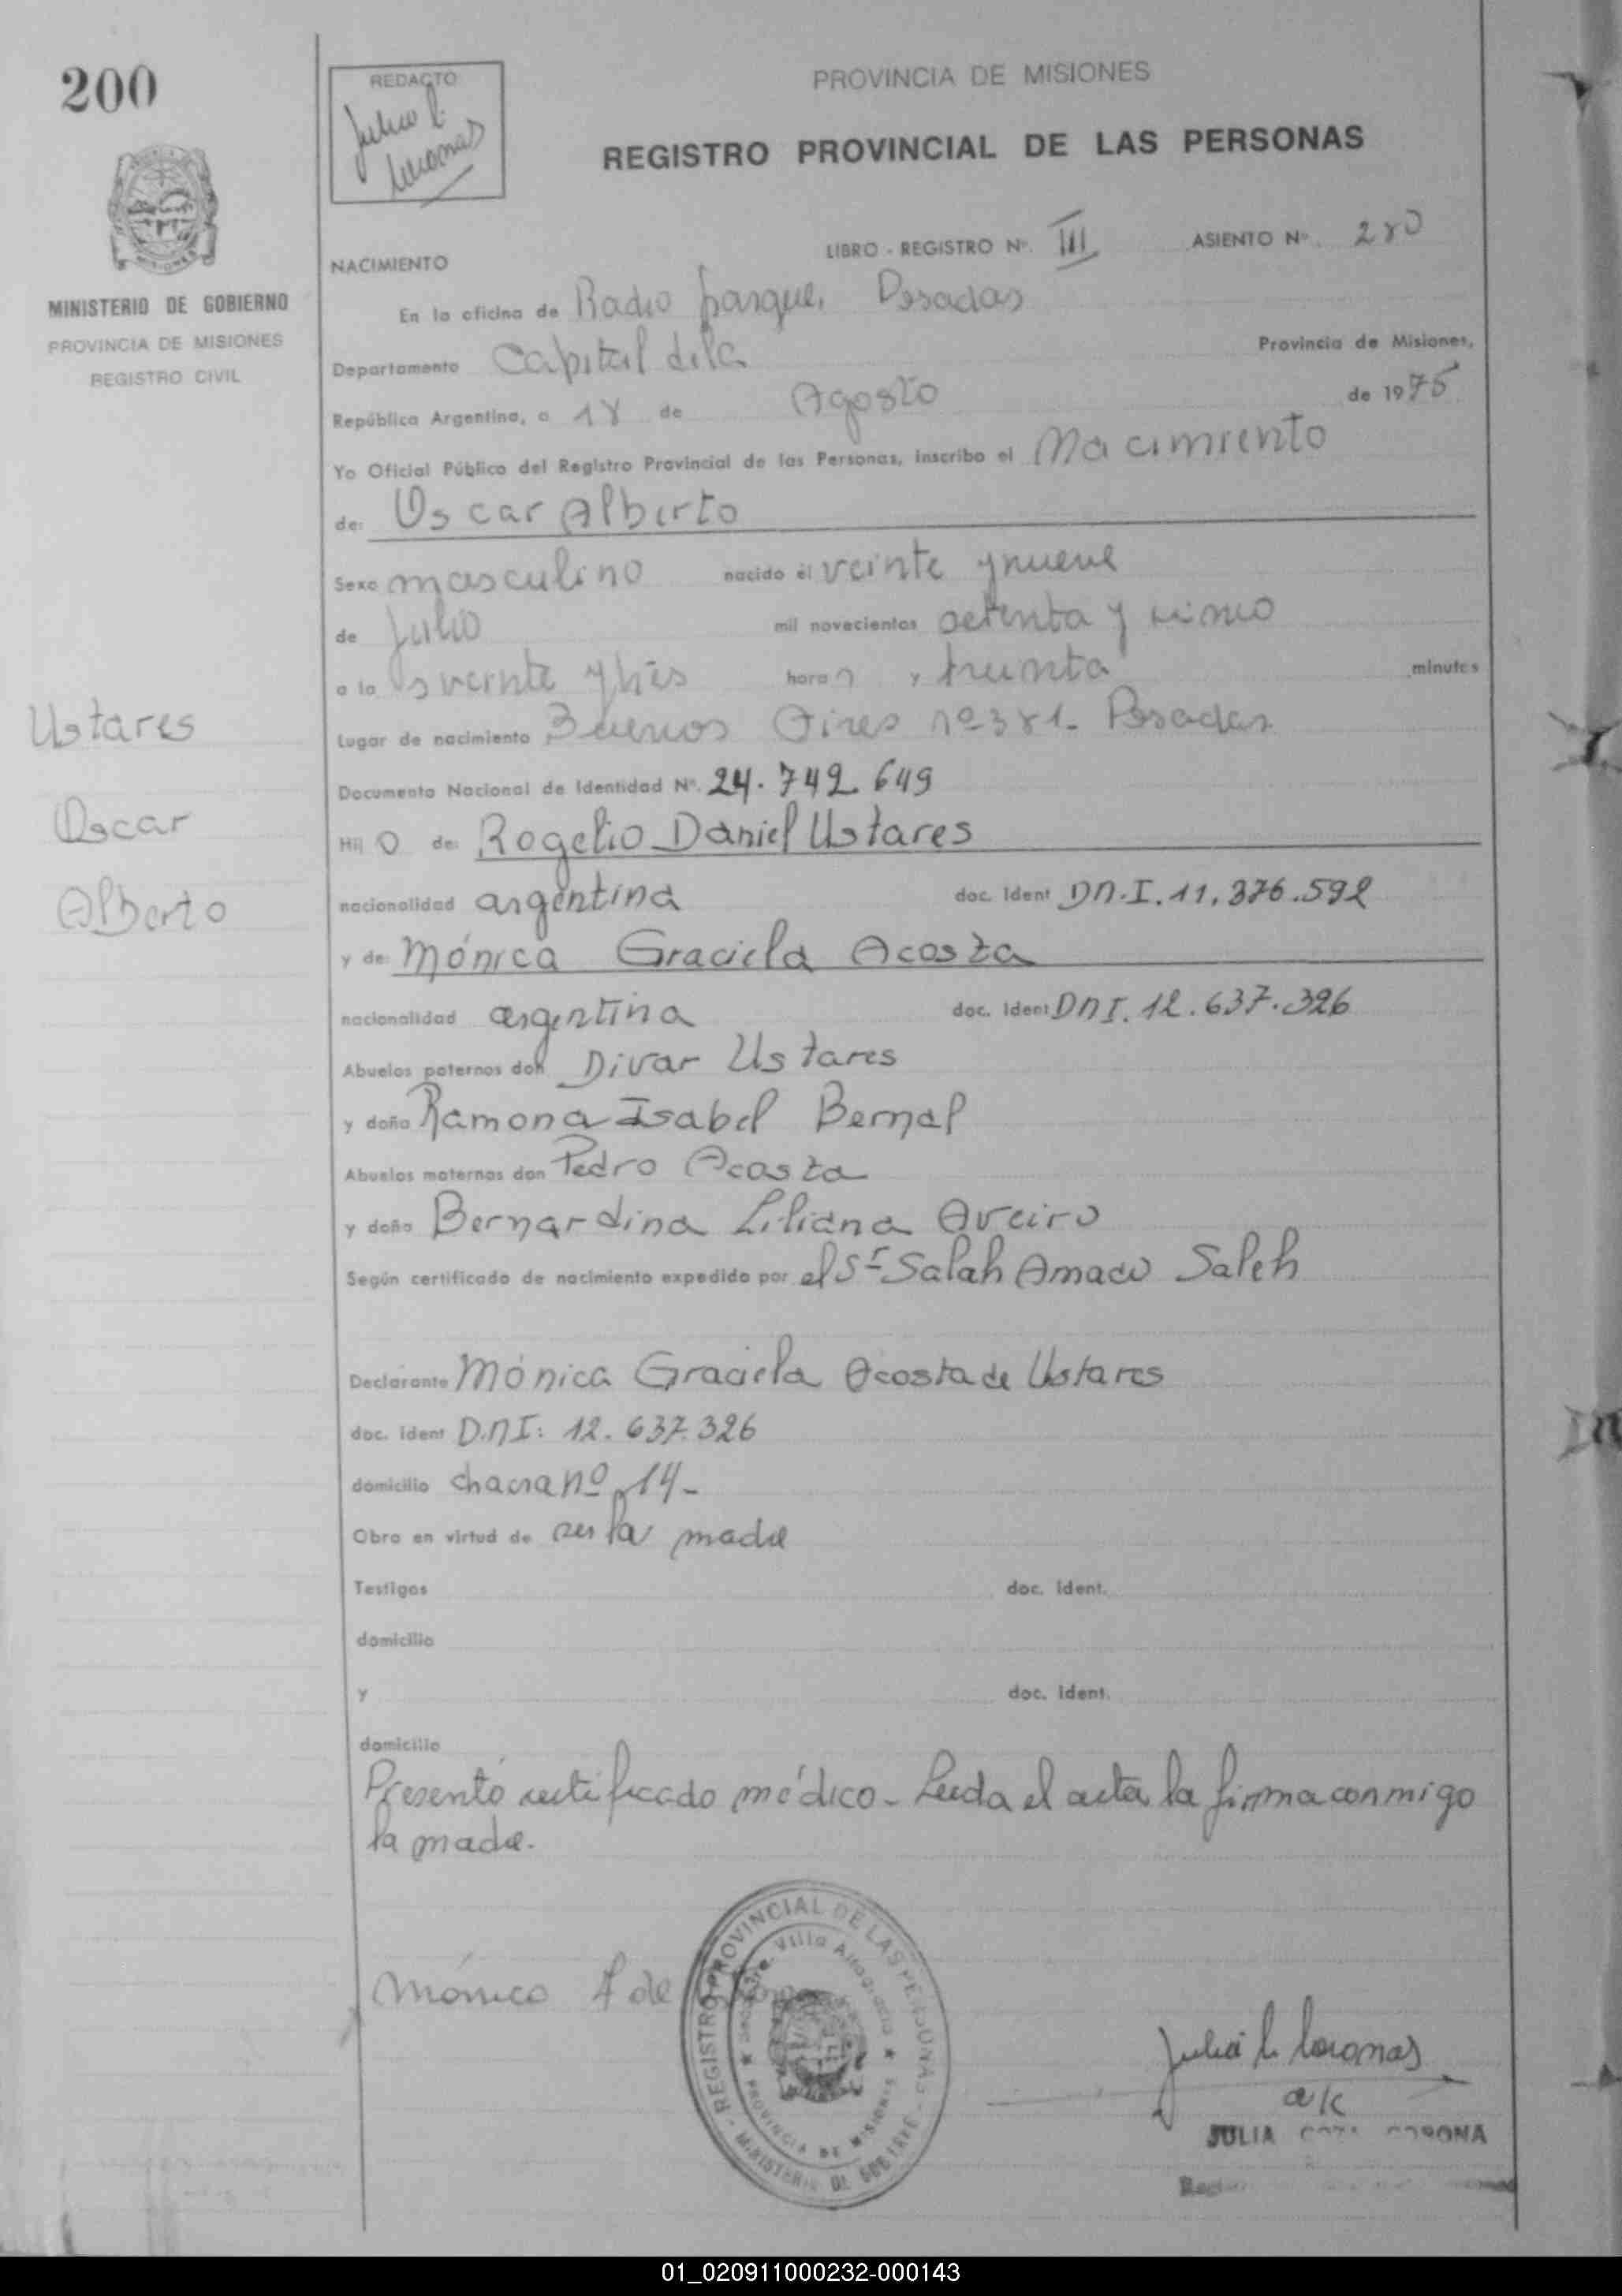 200
MINISTERIO DE GOBIERNO
PROVINCIA DE MISIONES
REGISTRO CIVIL
Ustares
Oscar
Alberto
REDACTO
PROVINCIA DE MISIONES
REGISTRO PROVINCIAL DE LAS PERSONAS
NACIMIENTO
LIBRO - REGISTRO Nº. III ASIENTO Nº. 280
En la oficina de Radio Parque, Posadas
Departamento Capital de la Provincia de Misiones,
República Argentina, a 18 de Agosto de 1975
Yo Oficial Público del Registro Provincial de las Personas, inscribo el Nacimiento
de: Oscar Alberto
Sexo masculino nacido el veinte y nueve
de Julio mil novecientos setenta y cinco
a las veinte y tres horas y treinta minutos
Lugar de nacimiento Buenos Aires nº 381- Posadas
Documento Nacional de Identidad Nº. 24.742.649
Hijo de: Rogelio Daniel Ustares
nacionalidad argentina doc. Ident DN.I. 11.376.592
y de: Mónica Graciela Acosta
nacionalidad argentina doc. Ident DNI. 12.637.326
Abuelos paternos don Divar Ustares
y doña Ramona Isabel Bernal
Abuelos maternos don Pedro Acosta
y doña Bernardina Liliana Aveiro
Según certificado de nacimiento expedido por el Sr Salah Amado Saleh
Declarante Mónica Graciela Acosta de Ustares
doc. ident D.NI: 12.637.326
domicilio chacra nº 14-
Obra en virtud de ser la madre
Testigos doc. ident.
domicilio
y doc. ident.
domicilio
Presentó certificado médico - Leida el acta, la firma conmigo
la madre.
Mónica A de
REGISTRO PROVINCIAL DE LAS PERSONAS - MINISTERIO DE GOBIERNO
Villa
PROVINCIA DE MISIONES
JULIA
01_020911000232-000143